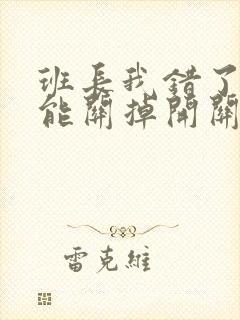 班長我錯了
能關掉開關
雷克維